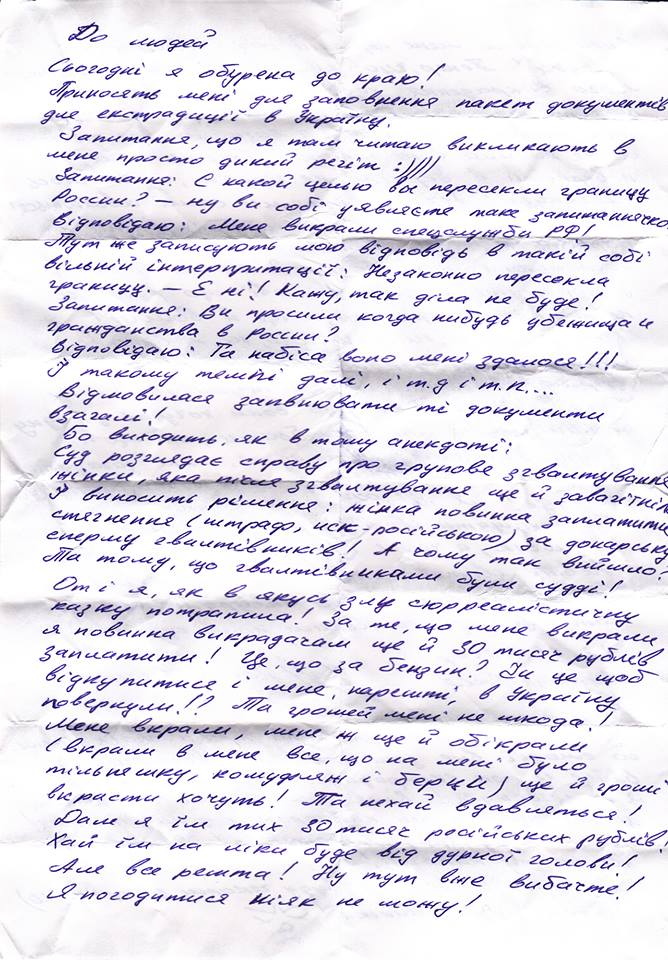 До людей
Сьогодні я обурена до краю!
Приносять мені для заповнення пакет документів
для екстрадиції в Україну.
Запитання, що я там читаю викликають в
мене просто дикий регіт :)))))
Запитання: С какой целью вы пересекли границу
России? – ну ви собі уявляєте таке запитаннячко.
Відповідаю: Мене викрали спецслужби РФ!
Тут же записують мою відповідь в такій собі
вільній інтерпритації: Незаконно пересекла
границу. – Е ні! Кажу, так діла не буде!
Запитання: Вы просили когда нибудь убежища и
гражданства в России?
Відповідаю: Та набіса воно мені здалося!!!
І такому темпі далі, і т.д і т.п....
Відмовилася заповнювати ті документи
взагалі!
Бо виходить, як в тому анекдоті:
Суд розглядає справу про групове згвалтування
жінки, яка після згвалтування ще й завагітніла
І виносить рішення: жінка повинна заплатити
стягнення (штраф, иск-російською) за донорську
сперму гвалтівників! А чому так вийшло?
Та тому, що гвалтівниками були судді!
От і я, як в якусь злу сюрреалістичну
казку потрапила! За те, що мене викрали
я повинна викрадачам ще й 30 тисяч рублів
заплатити! Це, що за бензин? Чи це щоб
відкупитися і мене, нарешті, в Україну
повернули!? Та грошей мені не шкода!
Мене вкрали, мене ж ще й обікрали
(вкрали в мене все, що на мені було
тільняшку, комуфляж і берци) ще й гроші
вкрасти хочуть! Та нехай вдавляться!
Дам я їм тих 30 тисяч російських рублів!
Хай їм на ліки буде від дурної голови!
Але все решта! Ну тут вже вибачте!
Я погодитися ніяк не можу!